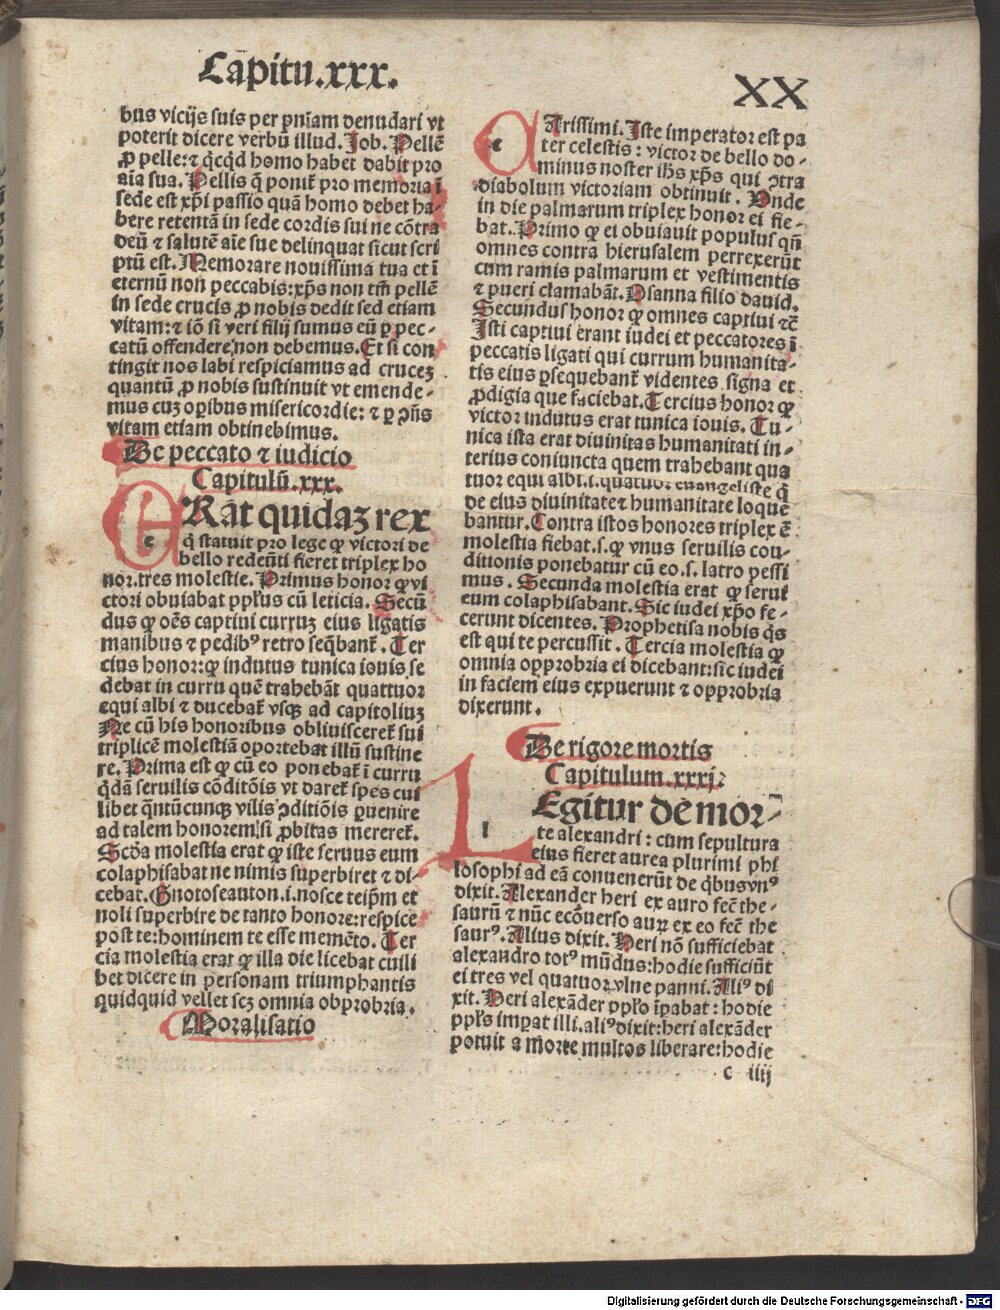 Capitu.xxx.
XX
bus vicijs suis per pniam denudari vt
poterit dicere verbũ illud. Job. Pellẽ
ꝓ pelle: ⁊ q̃cq̃d homo habet dabit pro
aĩa sua. Pellis q̃ ponit᷑ pro memoria ĩ
sede est xp̃i passio quã homo debet ha-
bere retentã in sede cordis sui ne cõtra
deũ ⁊ salutẽ aĩe sue delinquat sicut scri
ptũ est. Memorare nouissima tua et ĩ
eternũ non peccabis: xp̃s non tm̃ pellẽ
in sede crucis ꝓ nobis dedit sed etiam
vitam: ⁊ iõ si veri filij sumus eũ ꝑ pec-
catũ offendere non debemus. Et si con
tingit nos labi respiciamus ad crucez
quantũ ꝓ nobis sustinuit vt emende-
mus cuz oꝑibus misericordie: ⁊ ꝑ ꝯñs
vitam etiam obtinebimus.
De peccato ⁊ iudicio
Capitulũ.xxx.
e
ERat quidaz rex
q̃ statuit pro lege ꝙ victori de
bello redeũti fieret triplex ho
nor. tres molestie. Primus honor ꝙ vi
ctori obuiabat ppl̃us cũ leticia. Secũ
dus ꝙ oẽs captiui curruz eius ligatis
manibus ⁊ pedibꝰ retro seq̃bant᷑. Ter
cius honor: ꝙ indutus tunica iouis se
debat in curru quẽ trahebãt quattuor
equi albi ⁊ ducebat᷑ vsqꝫ ad capitoliuz
Ne cũ his honoribus obliuisceret᷑ sui
triplicẽ molestiã oportebat illũ sustine
re. Prima est ꝙ cũ eo ponebat᷑ ĩ curru
q̃dã seruilis cõditõis vt daret᷑ spes cui
libet q̃ntũcunqꝫ vilis ꝯditiõis ꝑuenire
ad talem honorem si ꝓbitas mereret᷑.
Scõa molestia erat ꝙ iste seruus eum
colaphisabat ne nimis superbiret ⁊ di-
cebat. Gnotoseauton.i. nosce teip̃m et
noli superbire de tanto honore: respice
post te: hominem te esse memẽto. Ter
cia molestia erat ꝙ illa die licebat cuili
bet dicere in personam triumphantis
quidquid vellet scz omnia obprobria.
Moralisatio
c
CArissimi. Iste imperator est pa
ter celestis: victor de bello do-
minus noster ihs xp̃s qui ꝯtra
diabolum victoriam obtinuit. Vnde
in die palmarum triplex honor ei fie-
bat. Primo ꝙ ei obuiauit populus qñ
omnes contra hierusalem perrexerũt
cum ramis palmarum et vestimentis
⁊ pueri clamabãt. Osanna filio dauid.
Secundus honor ꝙ omnes captiui ⁊c̃
Isti captiui erant iudei et peccatores ĩ
peccatis ligati qui currum humanita-
tis eius ꝑsequebant᷑ videntes signa et
ꝓdigia que faciebat. Tercius honor ꝙ
victor indutus erat tunica iouis. Tu-
nica ista erat diuinitas humanitati in-
terius coniuncta quem trahebant qua
tuor equi albi.i. quatuor euangeliste q̃
de eius diuinitate ⁊ humanitate loque
bantur. Contra istos honores triplex ẽ
molestia fiebat.s. ꝙ vnus seruilis con-
ditionis ponebatur cũ eo.s. latro pessi
mus. Secunda molestia erat ꝙ serui
eum colaphisabant. Sic iudei xp̃o fe-
cerunt dicentes. Prophetisa nobis q̃s
est qui te percussit. Tercia molestia ꝙ
omnia opprobria ei dicebant: sic iudei
in faciem eius expuerunt ⁊ opprobria
dixerunt.
De rigore mortis
Capitulum.xxxj.
l
LEgitur de mor-
te alexandri: cum sepultura
eius fieret aurea plurimi phi
losophi ad eã conuenerũt de q̃bus vnꝰ
dixit. Alexander heri ex auro fec̃ the-
saurũ ⁊ nũc ecõuerso auꝝ ex eo fec̃ the
saurꝰ. Alius dixit. Heri nõ sufficiebat
alexandro totꝰ mũdus: hodie sufficiũt
ei tres vel quatuor vlne panni. Aliꝰ di
xit. Heri alexãder ppl̃o ĩꝑabat: hodie
ppl̃s imꝑat illi. aliꝰ dixit: heri alexãder
potuit a morte multos liberare: hodie
c iiij
Digitalisierung gefördert durch die Deutsche Forschungsgemeinschaft - DFG